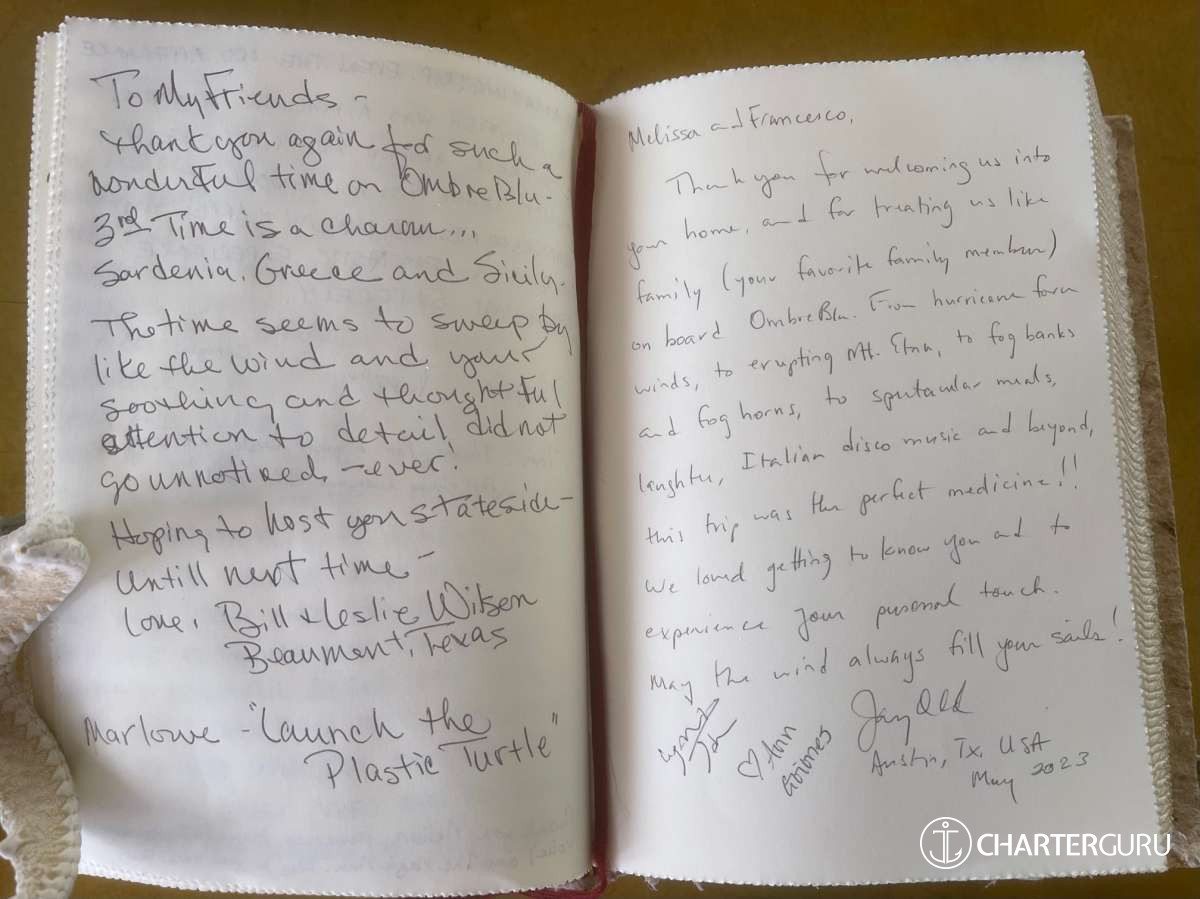 To My Friends -
thank you again for such a
wonderful time on OmbreBlu.
3rd Time is a charm...
Sardenia, Greece and Sicily.
The time seems to sweep by
like the wind and your
soothing and thoughtful
attention to detail, did not
go unnoticed -ever!
Hoping to host you stateside -
Untill next time -
Love, Bill & Leslie Wilson
Beaumont, Texas
Marlowe - "Launch the
Plastic Turtle"
Melissa and Francesco,
Thank you for welcoming us into
your home, and for treating us like
family (your favorite family members)
on board OmbreBlu. From hurricane force
winds, to erupting Mt. Etna, to fog banks
and fog horns, to spectacular meals,
laughter, Italian disco music and beyond,
this trip was the perfect medicine!!
We loved getting to know you and to
experience your personal touch.
May the wind always fill your sails!
♡ Ann
Grimes
Jay
Austin, Tx. USA
May 2023
CHARTERGURU